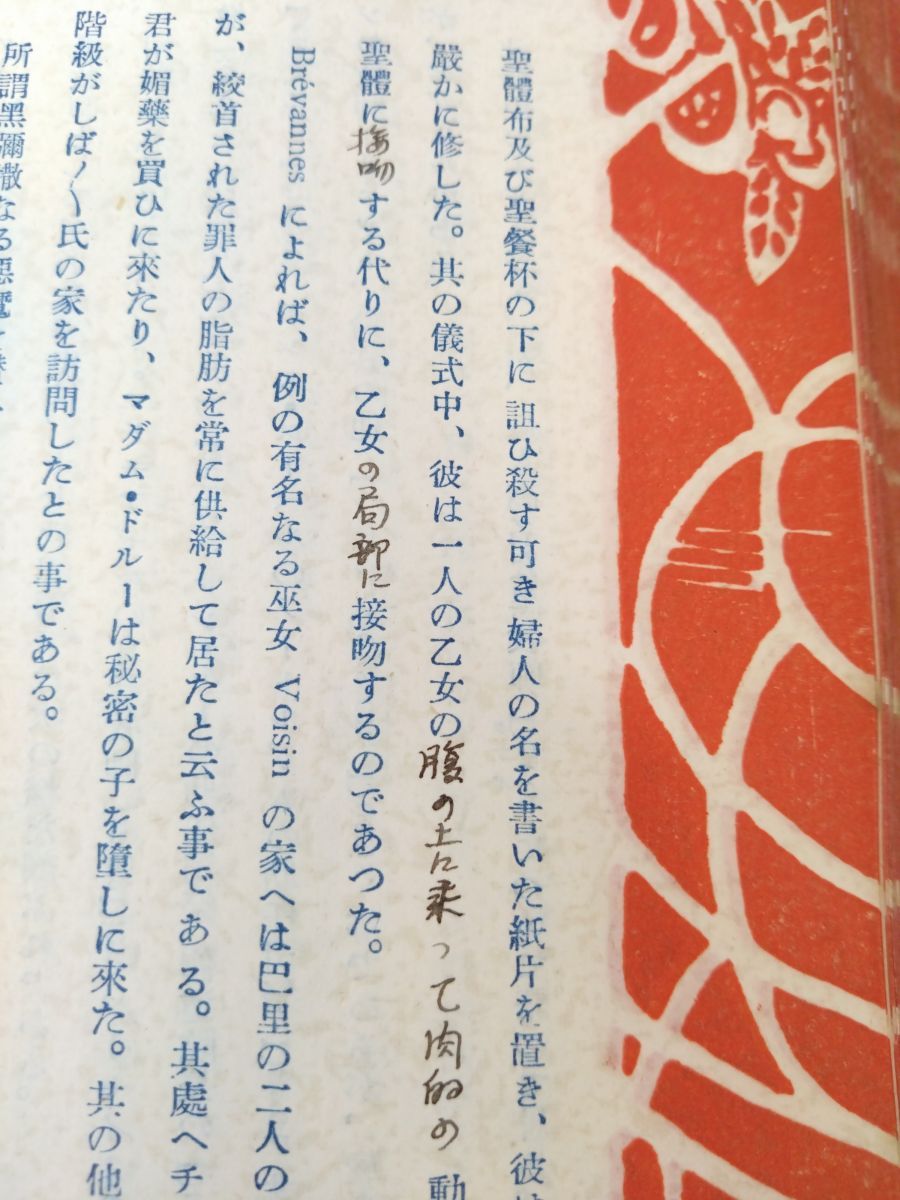 聖體布及び聖餐杯の下に詛ひ殺す可き婦人の名を書いた紙片を置き、彼は
嚴かに修した。其の儀式中、彼は一人の乙女の腹の上に乘って肉的の動
聖體に接吻する代りに、乙女の局部に接吻するのであつた。
Brévannes によれば、例の有名なる巫女 Voisin の家へは巴里の二人の
が、絞首された罪人の脂肪を常に供給して居たと云ふ事である。其處へチ
君が媚藥を買ひに來たり、マダム・ドルーは秘密の子を墮しに來た。其の他
階級がしば〳〵氏の家を訪問したとの事である。
所謂黑彌撒なる惡魔